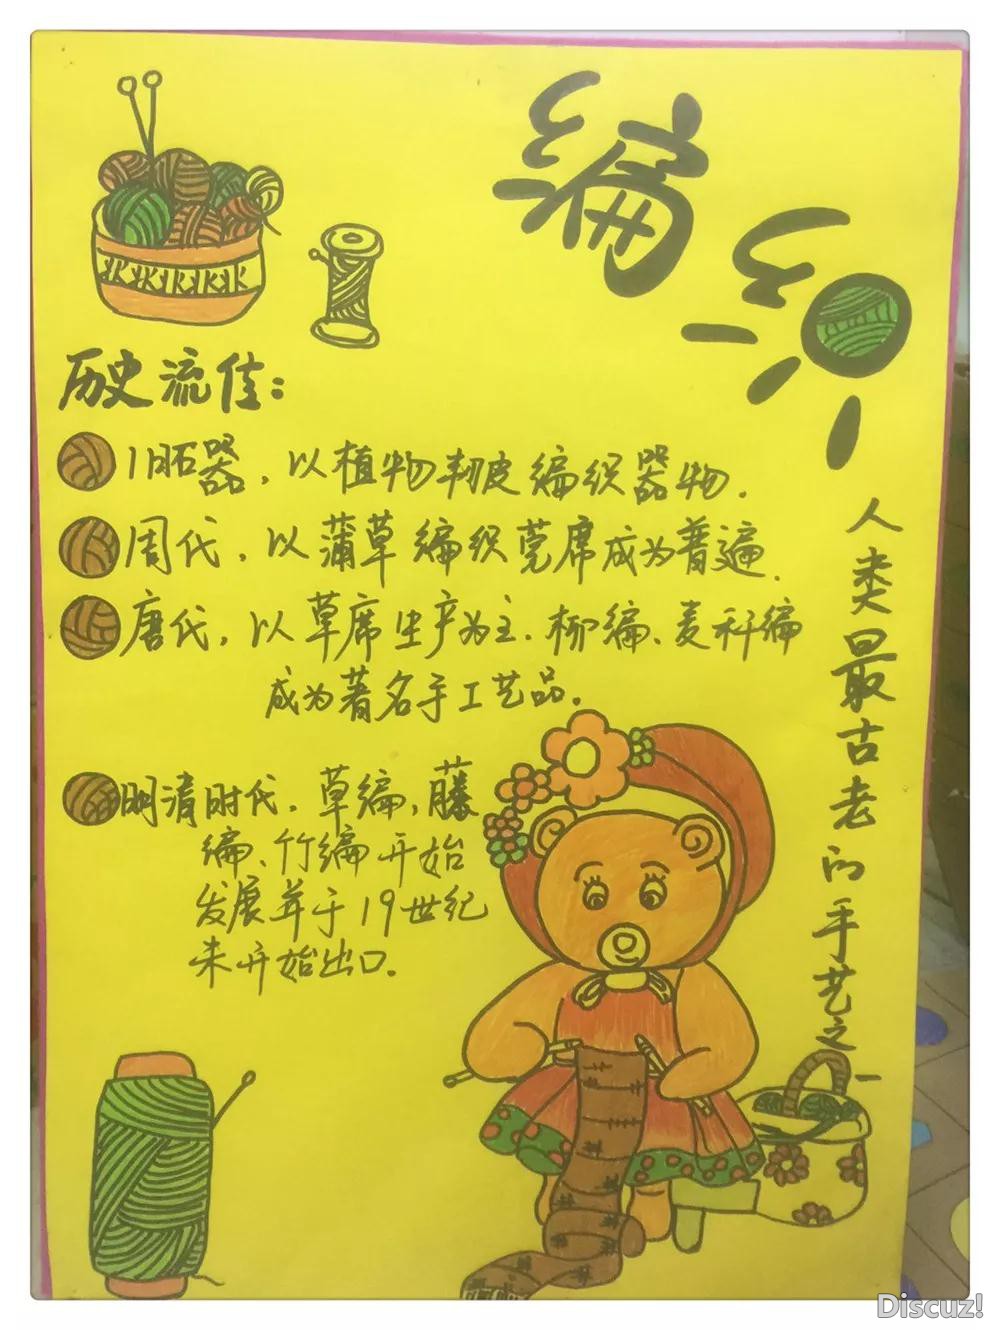 编织
人类最古老的手艺之一
历史流佳：
旧石器，以植物韧皮编织器物.
周代，以蒲草编织莞席成为普遍.
唐代，以草席生产为主.柳编、麦秆编
成为著名手工艺品.
明清时代，草编，藤
编、竹编开始
发展并于19世纪
末开始出口.
Discuz!